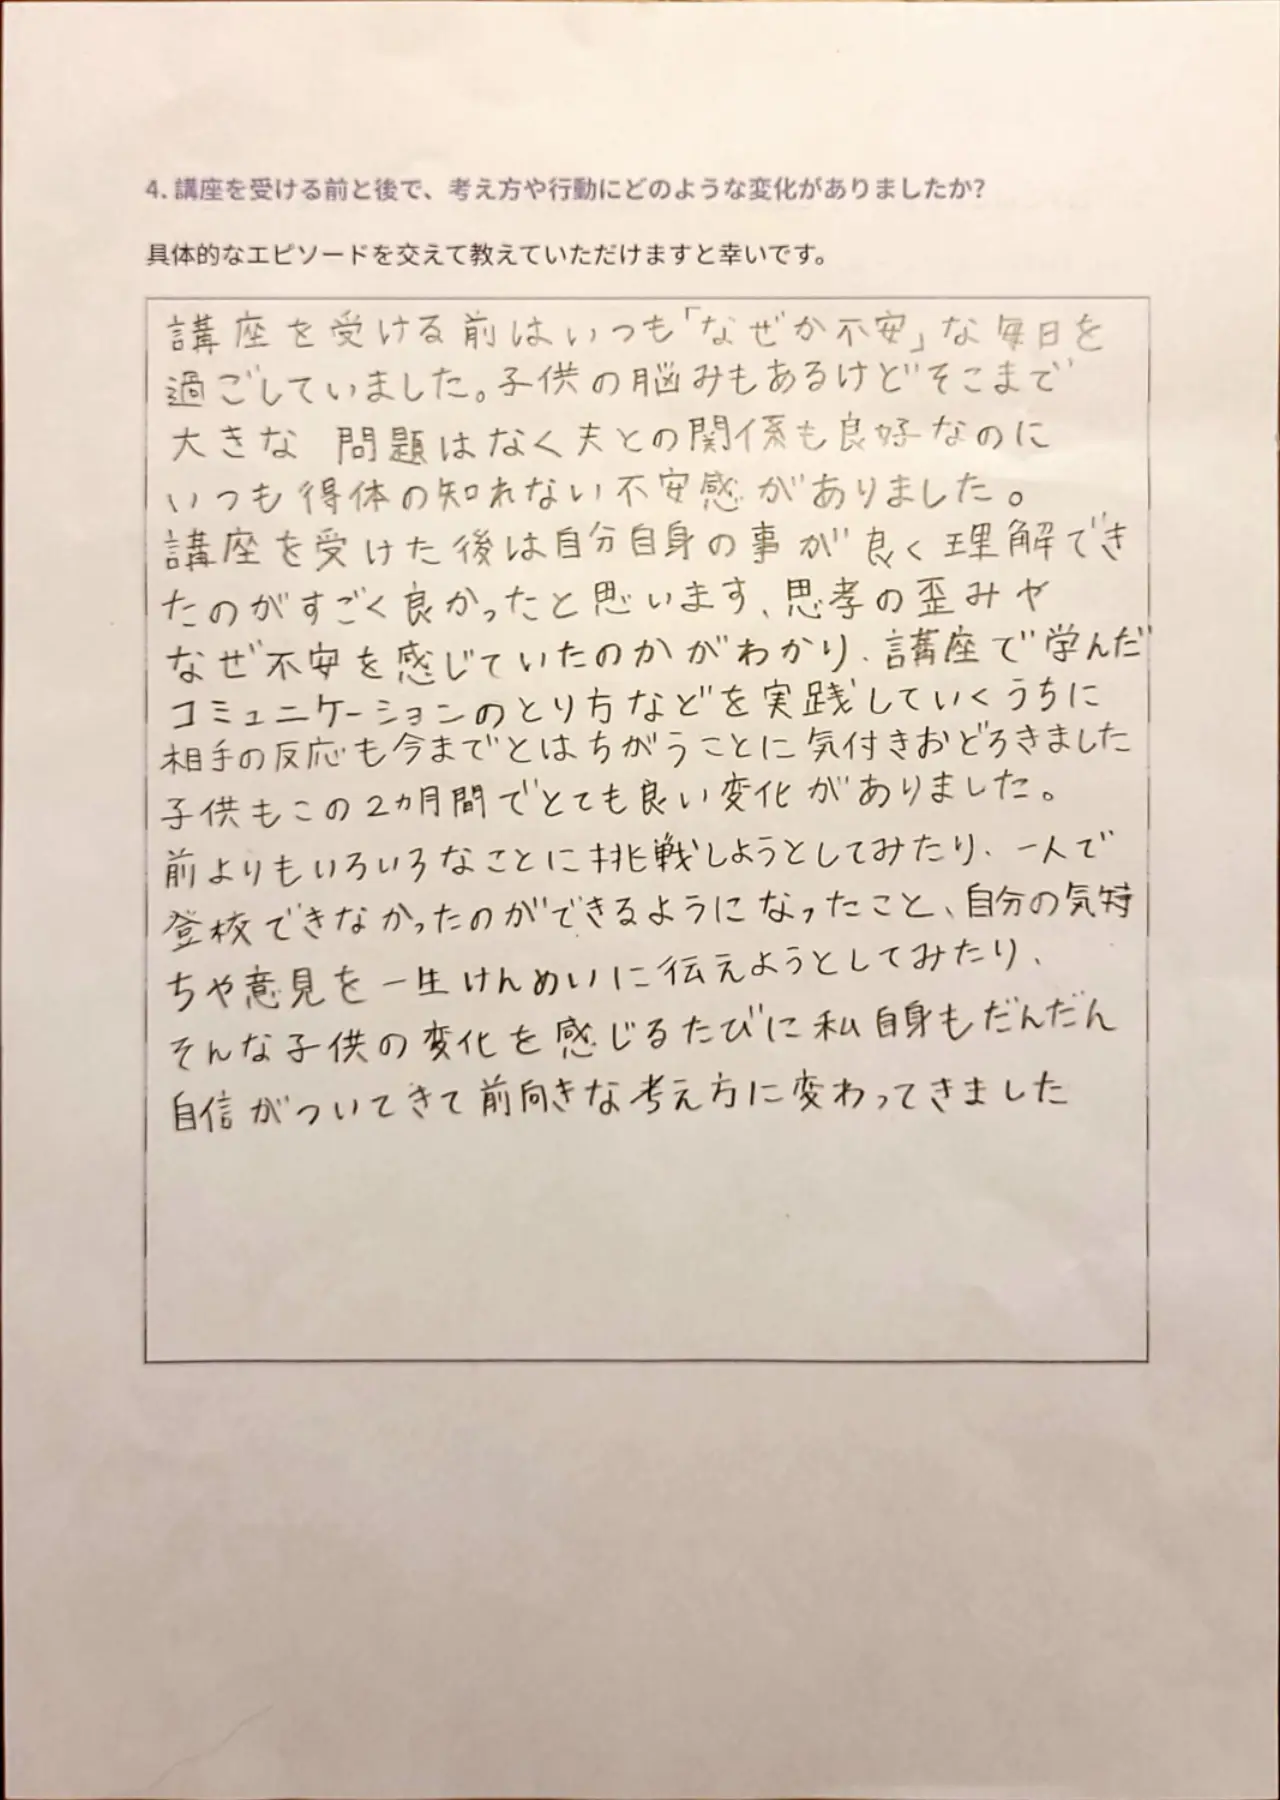 4. 講座を受ける前と後で、考え方や行動にどのような変化がありましたか?
具体的なエピソードを交えて教えていただけますと幸いです。
講座を受ける前はいつも「なぜか不安」な毎日を
過ごしていました。子供の脳みもあるけどそこまで
大きな 問題はなく夫との関係も良好なのに
いつも得体の知れない不安感がありました。
講座を受けた後は自分自身の事が良く理解でき
たのがすごく良かったと思います、思考の歪みや
なぜ不安を感じていたのかがわかり、講座で学んだ
コミュニケーションのとり方などを実践していくうちに
相手の反応も今までとはちがうことに気付きおどろきました
子供もこの2ヵ月間でとても良い変化がありました。
前よりもいろいろなことに挑戦しようとしてみたり、一人で
登校できなかったのができるようになったこと、自分の気持
ちや意見を一生けんめいに伝えようとしてみたり、
そんな子供の変化を感じるたびに私自身もだんだん
自信がついてきて前向きな考え方に変わってきました